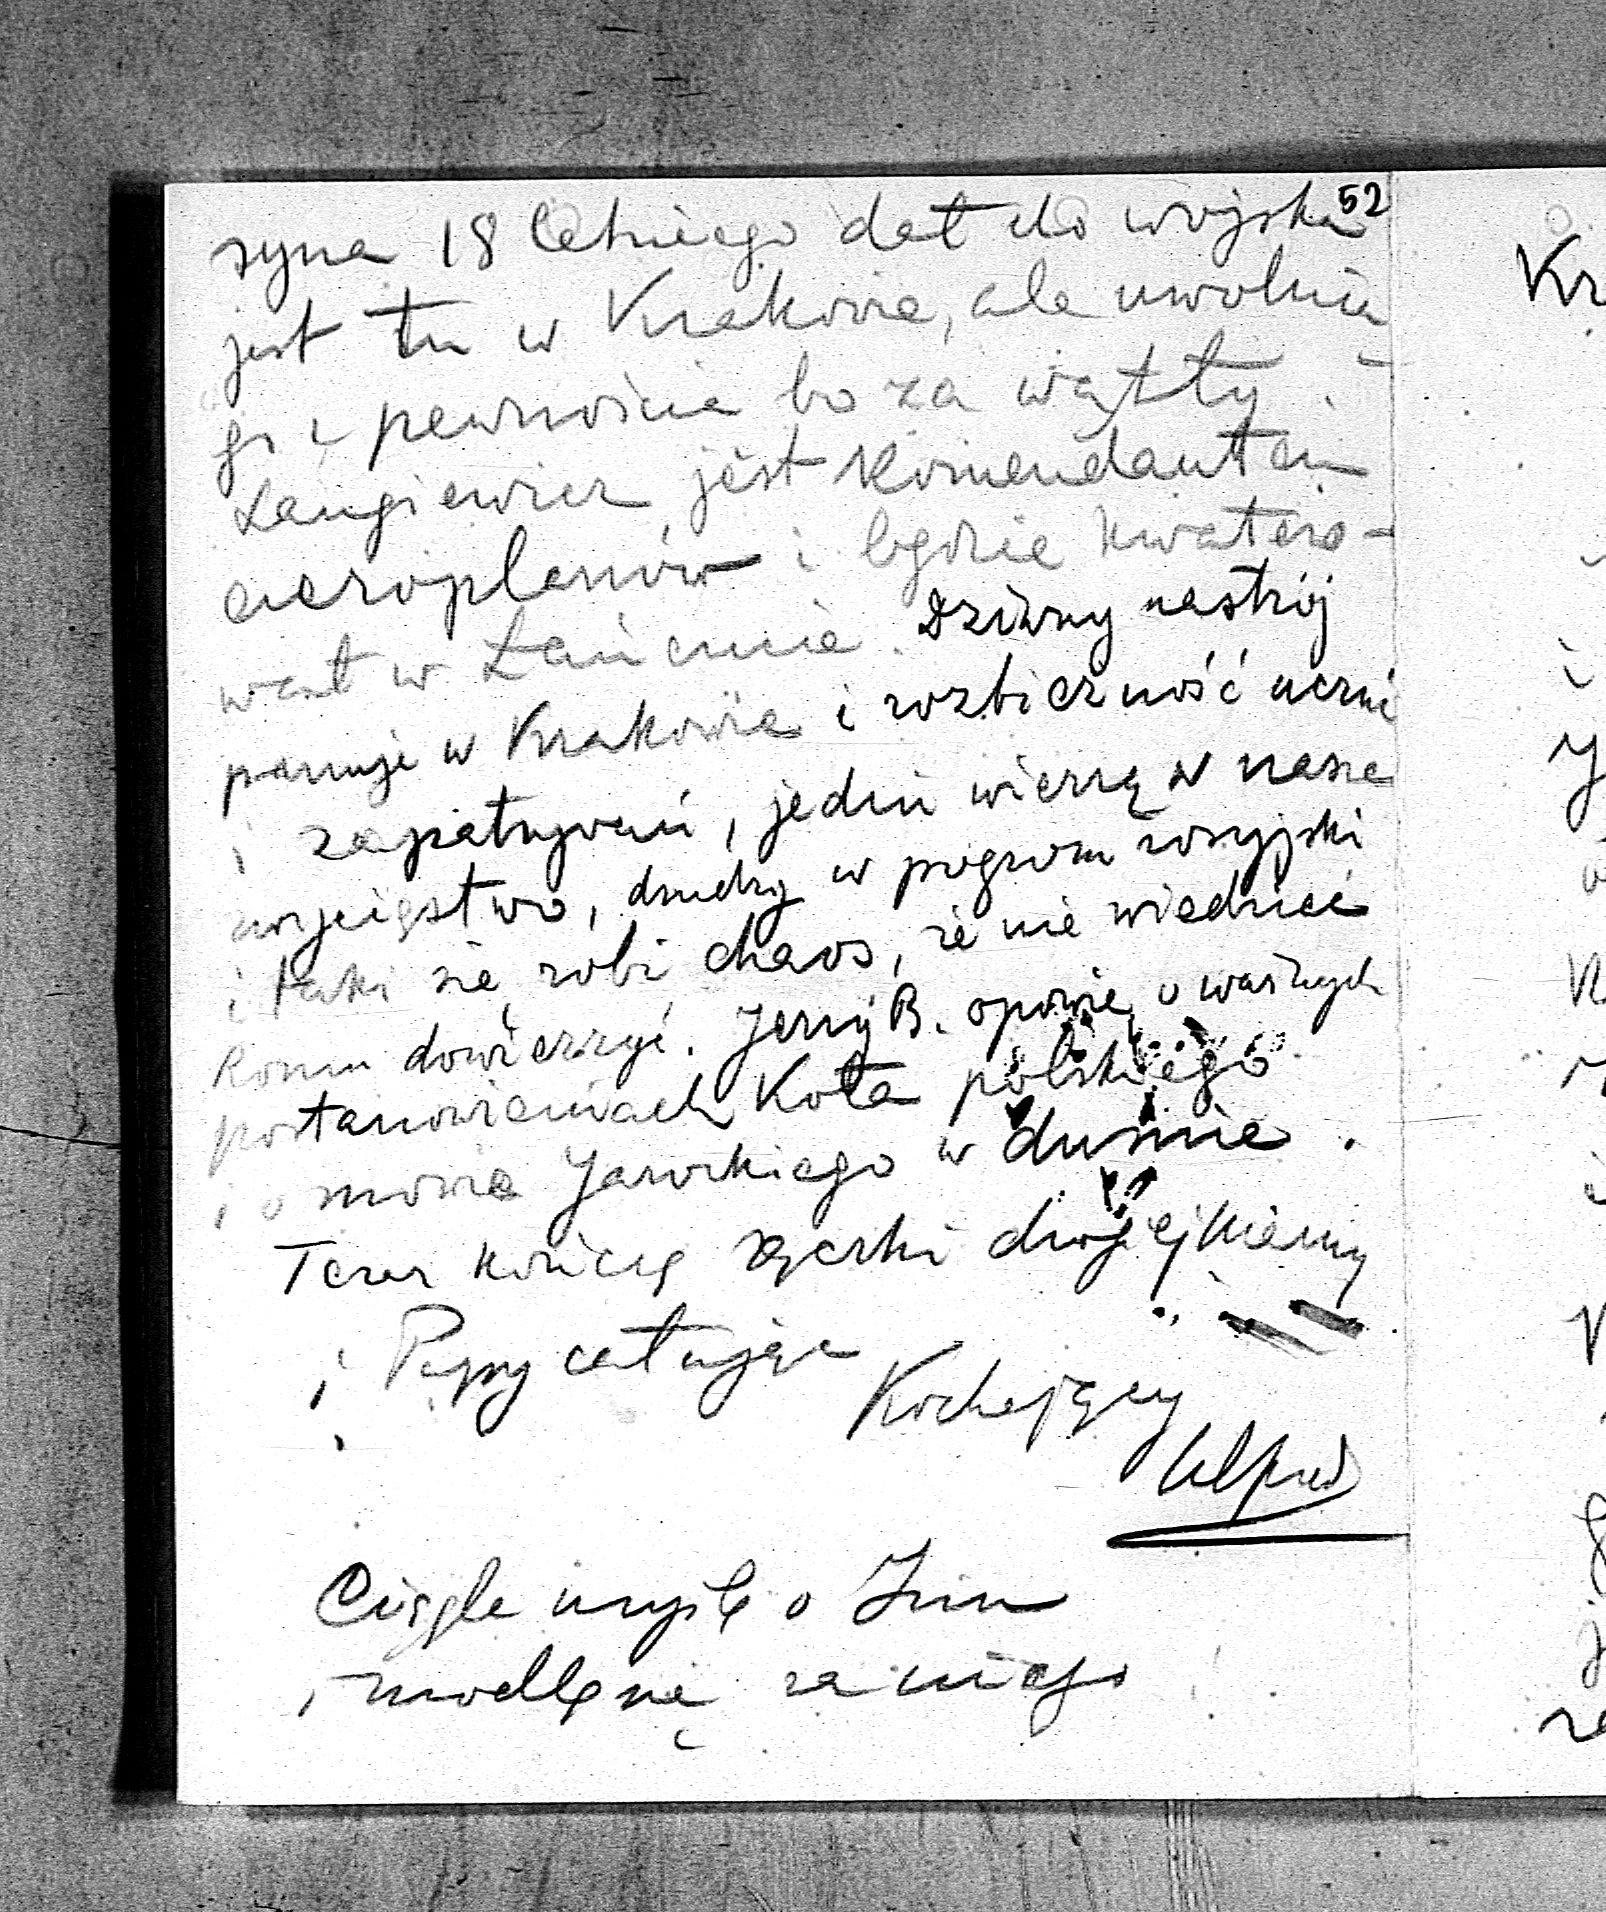 52
syna 18 letniego dał do wojska
jest tu w Krakowie, ale uwolnią
go z pewnością bo za wątły.
Langiewicz jest Komendantem
aeroplanów i będzie kwatero-
wał w Łańcucie. Dziwny nastrój
panuje w Krakowie i rozbieżność uczuć
i zapatrywań, jedni wierzą w nasze
zwycięstwo, drudzy w pogrom rosyjski
i taki się robi chaos, że nie wiedzieć
komu dowierzyć. Jerzy B. opowie o ważnych
postanowieniach Koła polskiego
i o mowie Jarockiego w dumie.
Teraz kończę rączki drogiej Mamy
i Papy całując
Kochający
Alfred
Ciągle myślę o Jziu
i modlę się za niego!